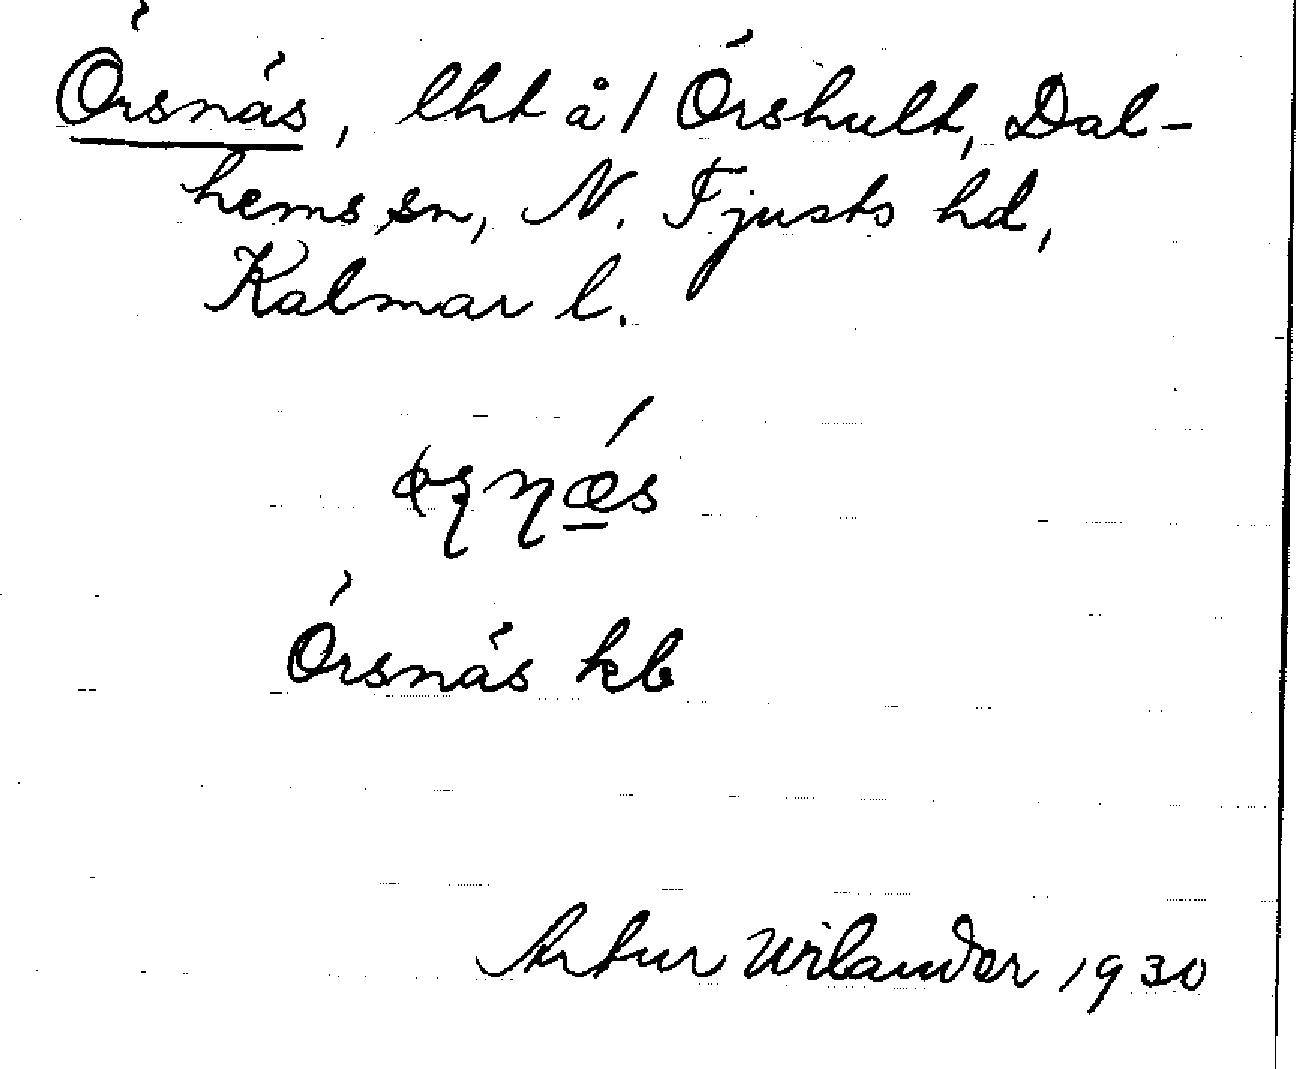 Örsnäs, lht å/ Örshult, Dal-
hems sn, N. Tjusts hd,
Kalmar l.
Örsnäs kb
Artur Wilander 1930